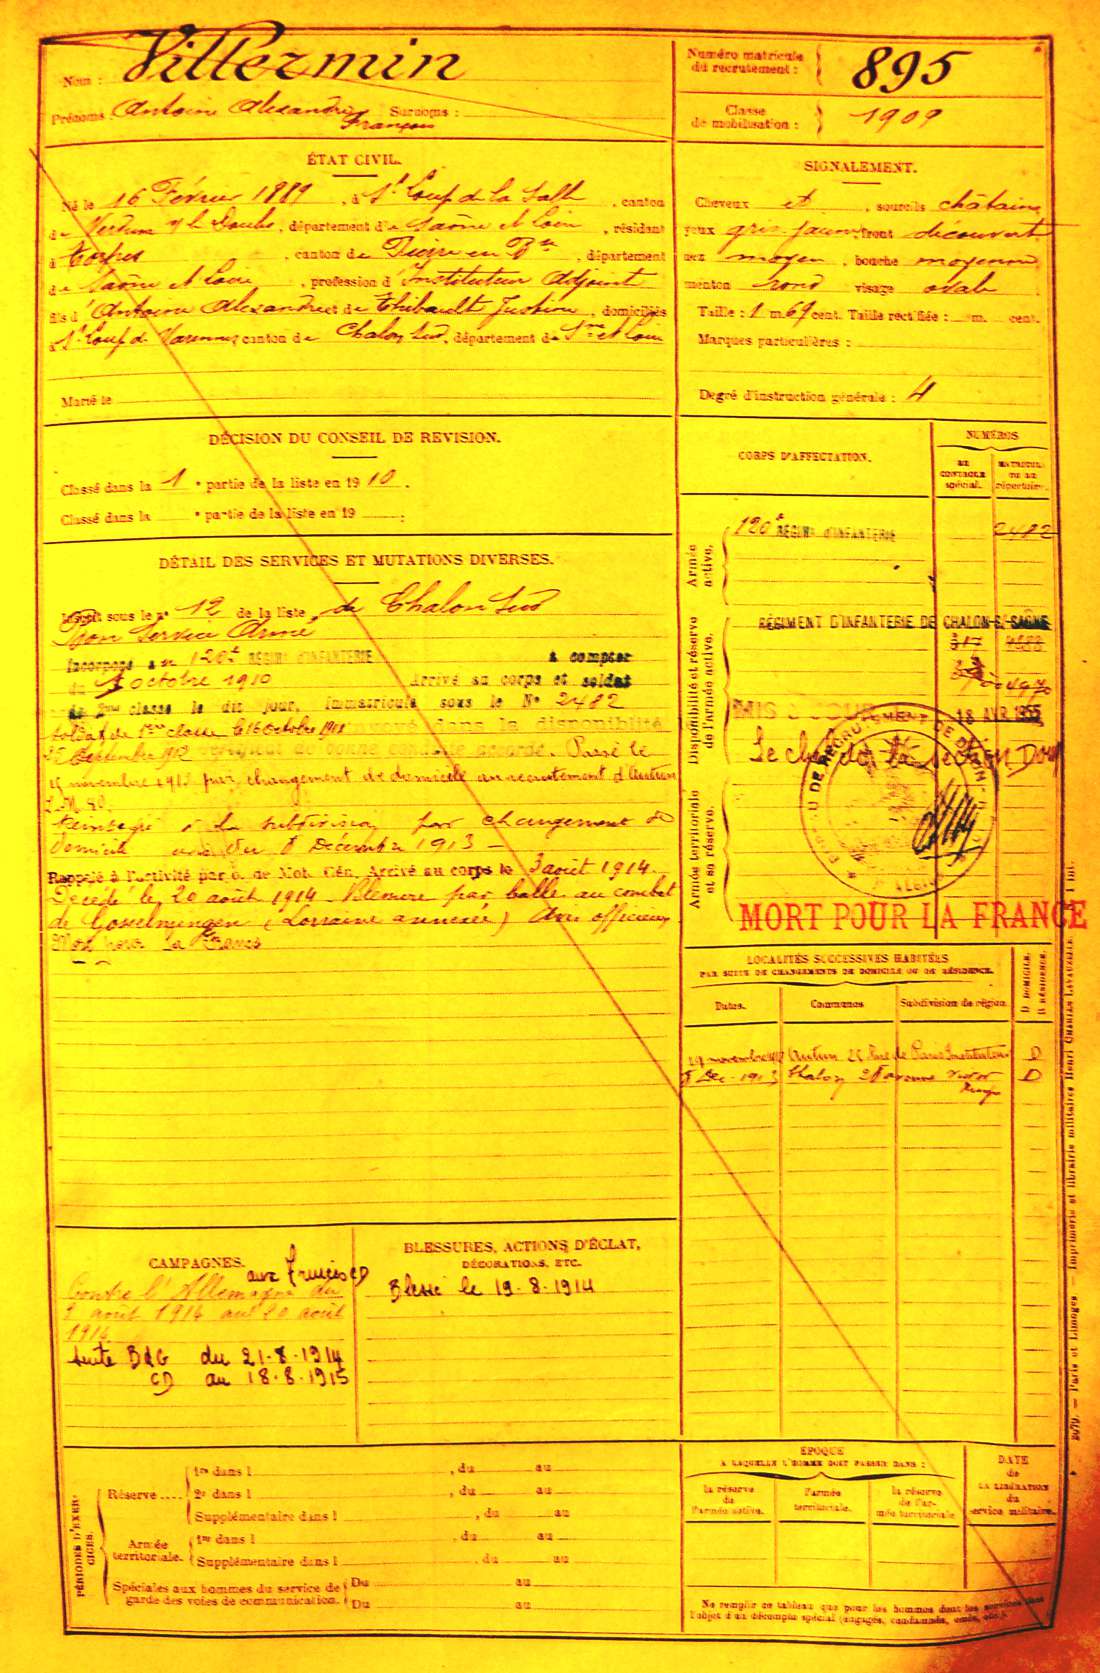 Nom : Villermin
Prénoms : Antoine Alexandre François Surnoms :
Numéro matricule du recrutement : 895
Classe de mobilisation : 1909
ÉTAT CIVIL.
Né le 16 Février 1889, à St Loup de la Salle, canton
de Verdun s/ le Doubs, département de Saône et Loire, résidant
à Torpes, canton de Pierre en Bsse, département
de Saône et Loire, profession d'Instituteur Adjoint
fils d'Antoine Alexandre et de Thibault Justine, domiciliés
à St Loup de Varennes canton de Chalon Sud, département de Sne et Loire
Marié le
SIGNALEMENT.
Cheveux et , sourcils châtains
yeux gris jaune front découvert
nez moyen, bouche moyenne
menton rond visage ovale
Taille : 1 m. 69 cent. Taille rectifiée : m. cent.
Marques particulières :
Degré d'instruction générale : 4
DÉCISION DU CONSEIL DE REVISION.
Classé dans la 1e partie de la liste en 1910.
Classé dans la e partie de la liste en 19 ;
DÉTAIL DES SERVICES ET MUTATIONS DIVERSES.
Inscrit sous le no 12 de la liste de Chalon Sud
Bon Service Armé
Incorporé au 120e RÉGIMt D'INFANTERIE à compter
du 3 octobre 1910 Arrivé au corps et soldat
de 2me classe le dit jour, immatriculé sous le No 2482
Soldat de 1ère classe le 16 octobre 1911 envoyé dans la disponibilité
25 Septembre 1912 certificat de bonne conduite accordé. Passé le
19 novembre 1912 par changement de domicile au recrutement d'Autun
L.M. 90.
Réintégré à la subdivision par changement de
domicile du 8 Décembre 1913 -
Rappelé à l'activité par o. de Mob. Gén. Arrivé au corps le 3 août 1914.
Décédé le 20 août 1914 Blessure par balle au combat
de Gosselmingen (Lorraine annexée) Avis officiel
Mort pour la France
CORPS D'AFFECTATION.
NUMÉROS
DU CONTROLE spécial.
MATRICULE OU AU répertoire.
Armée active.
120e RÉGIMt D'INFANTERIE 2482
Disponibilité et réserve de l'armée active.
RÉGIMENT D'INFANTERIE DE CHALON-S/-SAÔNE
MIS À JOUR 18 AVR 1955
BUREAU DE RECRUTEMENT DE DIJON
Armée territoriale et sa réserve.
MORT POUR LA FRANCE
LOCALITÉS SUCCESSIVES HABITÉES
PAR SUITE DE CHANGEMENTS DE DOMICILE OU DE RÉSIDENCE.
Dates. Communes Subdivision de région. D DOMICILE. R RÉSIDENCE.
19 novembre 1912 Autun 25 Rue de Paris Instituteur D
8 Déc. 1913 Chalon 28 avenue Victor Hugo D
CAMPAGNES.
Contre l'Allemagne aux Armées CD du
2 août 1914 au 20 août
1914
Suite BdG du 21-8-1914
CD au 18-8-1915
BLESSURES, ACTIONS D'ÉCLAT,
DÉCORATIONS, ETC.
Blessé le 19-8-1914
PÉRIODES D'EXERCICES.
Réserve ....
1re dans l , du au
2e dans l , du au
Supplémentaire dans l , du au
Armée territoriale.
1re dans l , du au
Supplémentaire dans l , du au
Spéciales aux hommes du service de garde des voies de communication.
Du au
Du au
ÉPOQUE
A LAQUELLE L'HOMME DOIT PASSER DANS :
la réserve de l'armée active.
l'armée territoriale.
la réserve de l'armée territoriale
DATE de LA LIBÉRATION du service militaire.
Ne remplir ce tableau que pour les hommes dont les services font
l'objet d'un décompte spécial (engagés, condamnés, omis, etc.).
Paris et Limoges. — Imprimerie et librairie militaires Henri CHARLES-LAVAUZELLE.